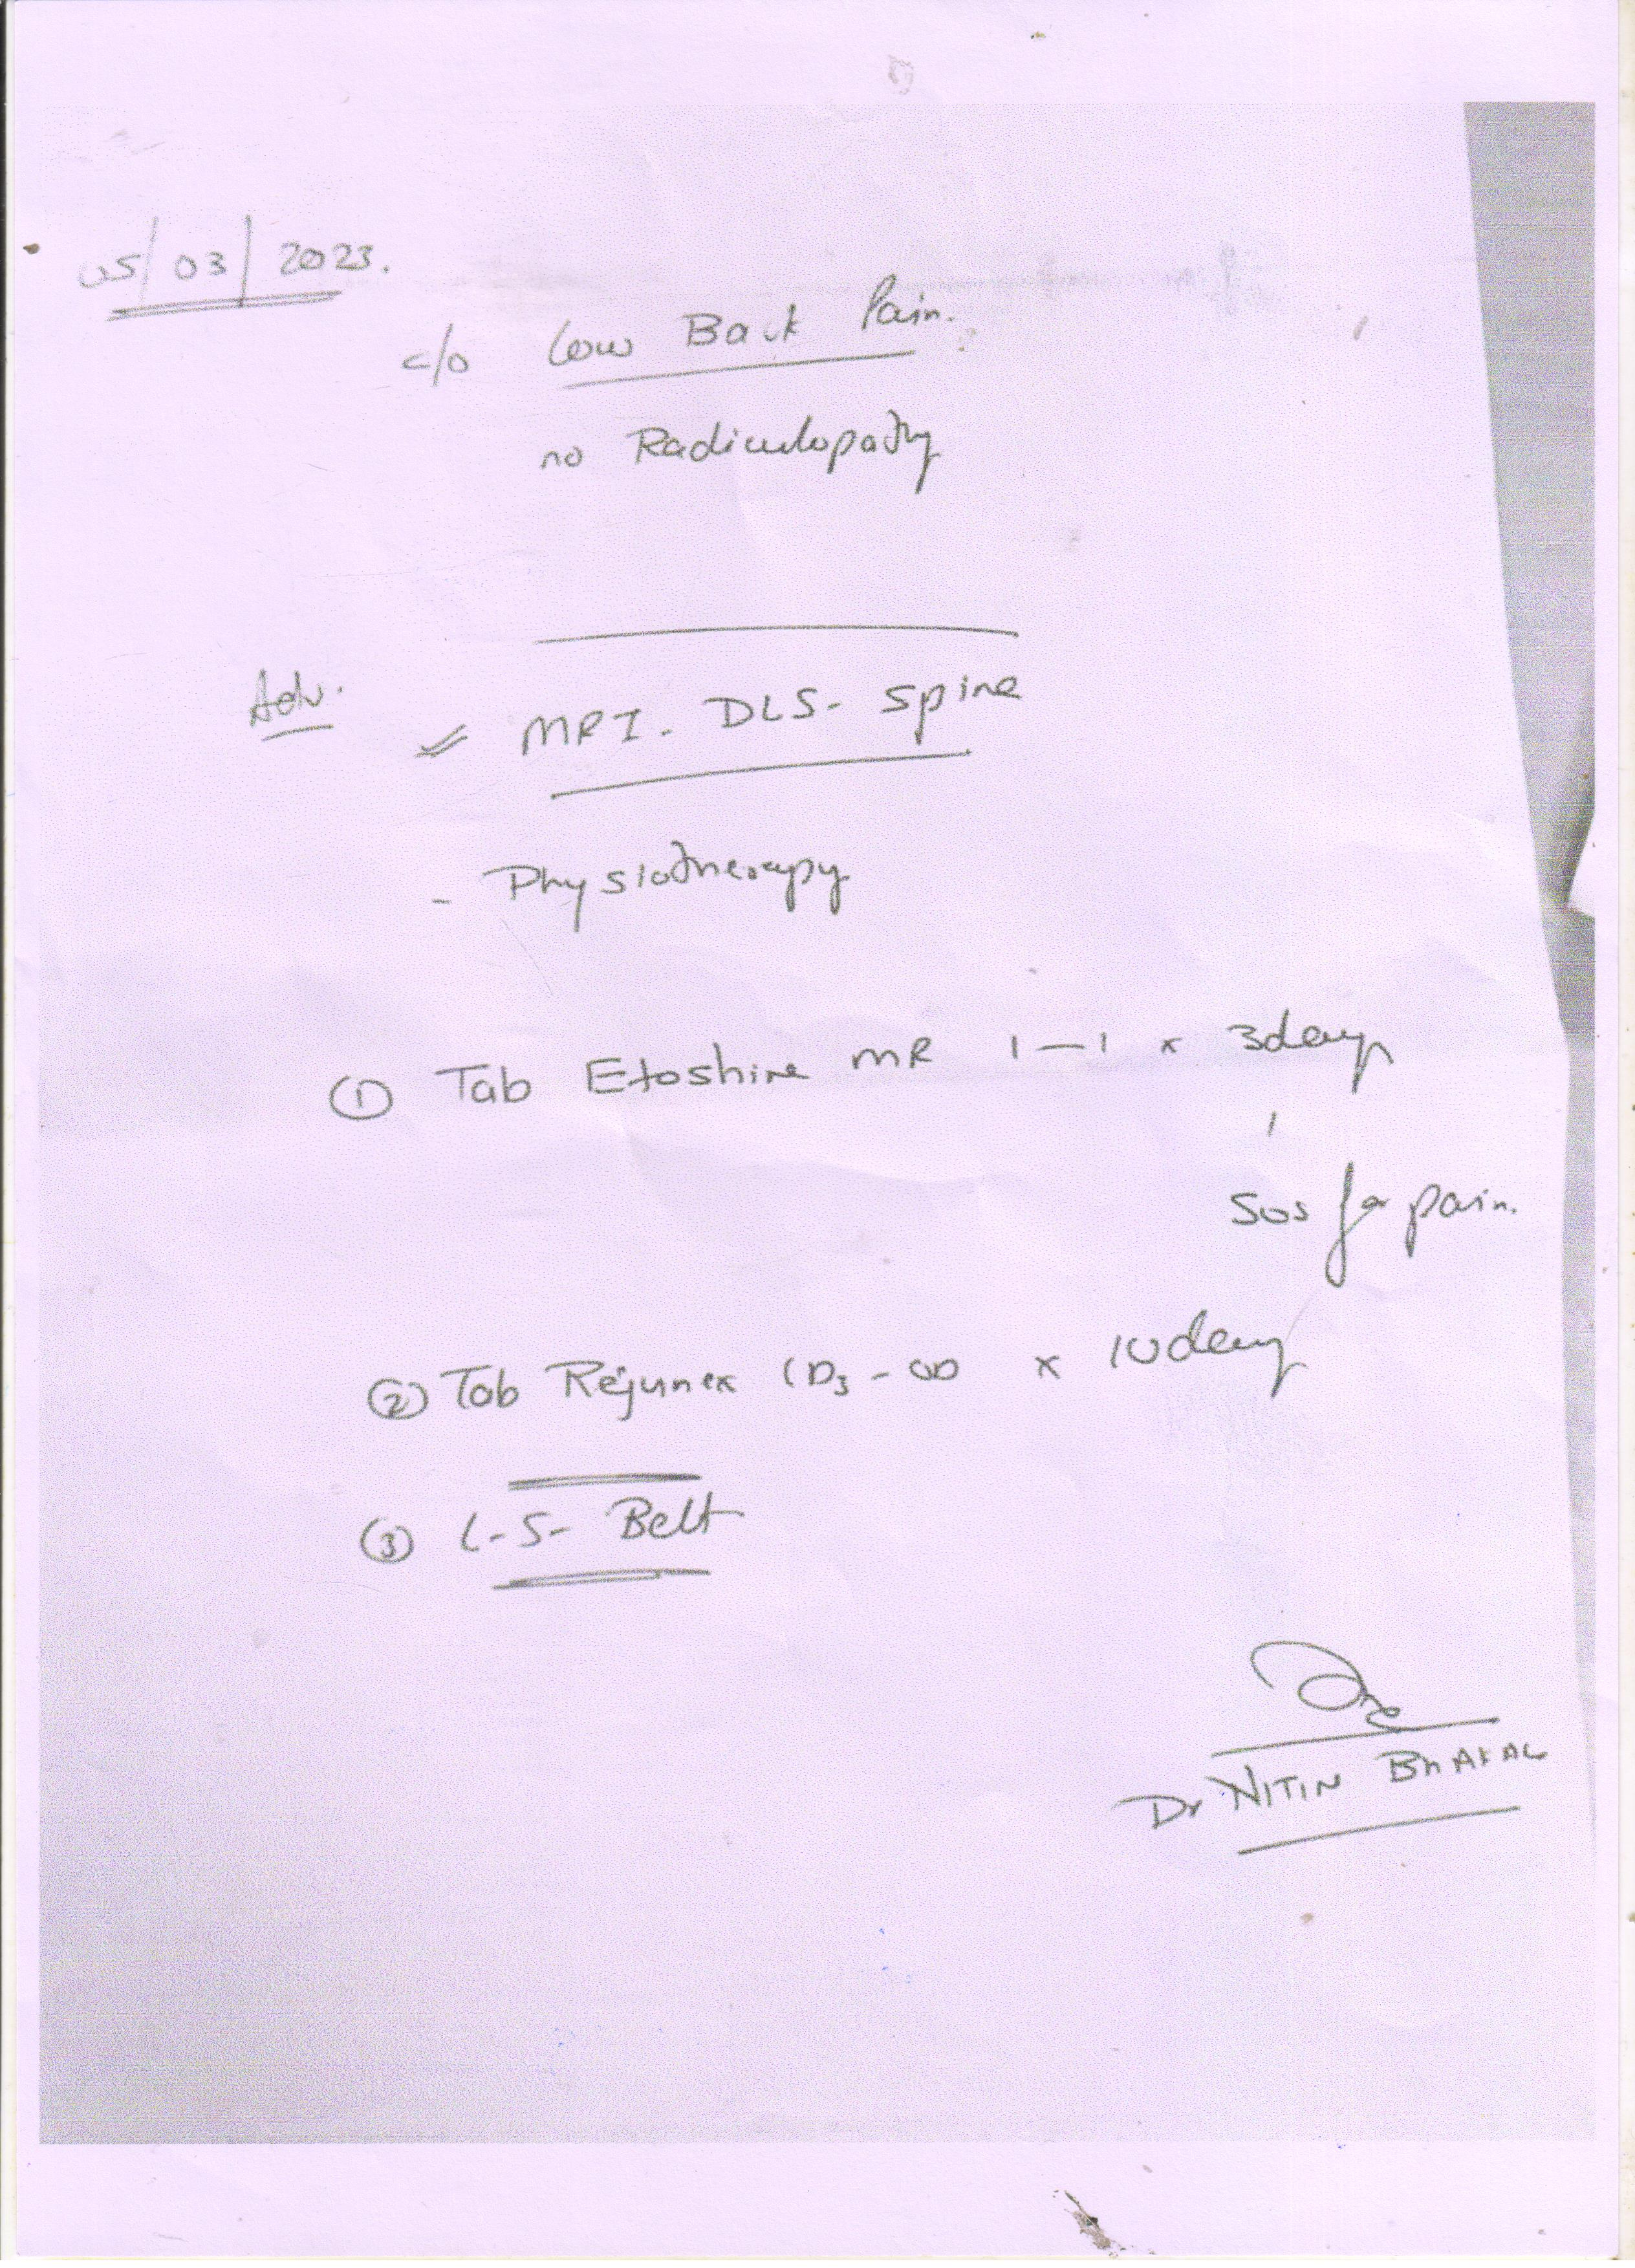 05/03/2023.
c/o Low Back Pain.
no Radiculopathy
Adv.
MRI. DLS- Spine
- Physiotherapy
① Tab Etoshine MR 1—1 x 3days
SOS for pain.
② Tab Rejunex CD3 - OD x 10days
③ L-S- Belt
Dr NITIN